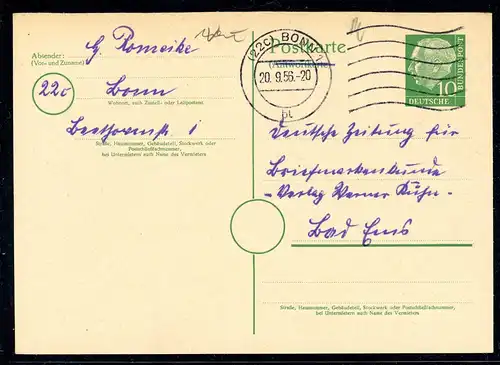 Absender:
(Vor- und Zuname)
G. Romeike
22c
Bonn
Wohnort, auch Zustell- oder Leitpostamt
Beethovenstr. 1
Straße, Hausnummer, Gebäudeteil, Stockwerk oder
Postschließfachnummer,
bei Untermietern auch Name des Vermieters
Postkarte
(Antwortkarte)
(22c) BONN 1
20. 9.56.-20
bt
10
DEUTSCHE
BUNDESPOST
Deutsche Zeitung für
Briefmarkenkunde
-Verlag Werner Kuhn-
Bad Ems
Straße, Hausnummer, Gebäudeteil, Stockwerk oder Postschließfachnummer,
bei Untermietern auch Name des Vermieters